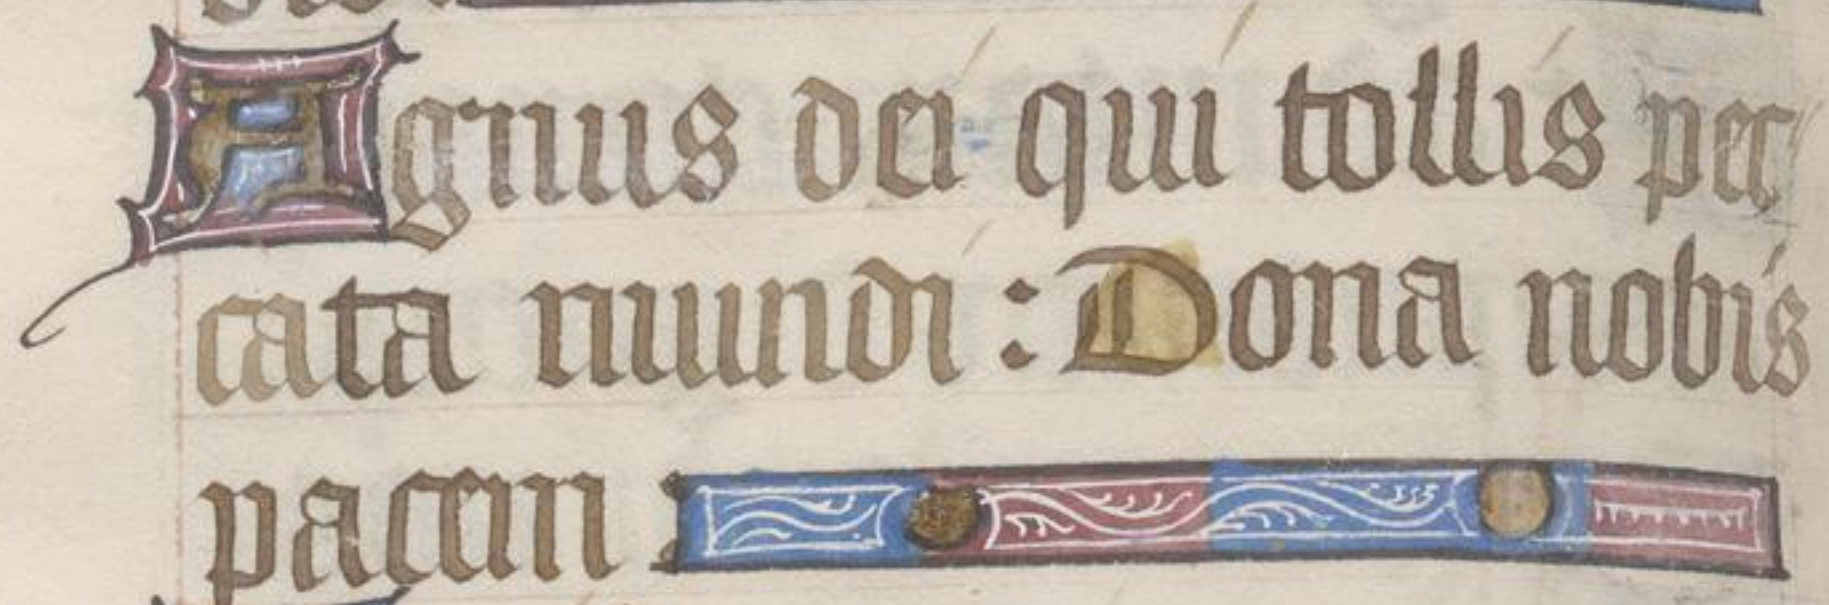 Agnus dei qui tollis pec
cata mundi : Dona nobis
pacem